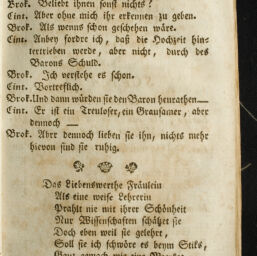 Brok. Beliebt ihnen sonst nichts?
Cint. Aber ohne mich ihr erkennen zu geben.
Brok. Als wenns schon geschehen wäre.
Cint. Anbey fordre ich, daß die Hochzeit hin=
tertrieben werde, aber nicht, durch des
Barons Schuld.
Brok. Ich verstehe es schon.
Cint. Vortreflich.
Brok. Und dann würden sie den Baron heyrathen—
Cint. Er ist ein Treuloser, ein Grausamer, aber
dennoch —
Brok. Aber dennoch lieben sie ihn, nichts mehr
hievon sind sie ruhig.
Das Liebenswerthe Fräulein
Als eine weise Lehrerin
Prahlt nie mit ihrer Schönheit
Nur Wissenschaften schätzet sie
Doch eben weil sie gelehrt,
Soll sie ich schwöre es beym Stiks,